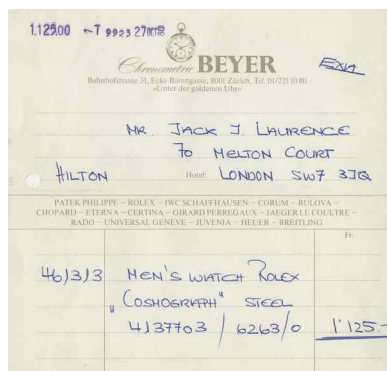 1.125.00 T 9923 27
Chronometrie BEYER
Bahnhofstrasse 31, Ecke Bärengasse, 8001 Zürich, Tel. 01/221 10 80
«Unter der goldenen Uhr»
MR. JACK J. LAURENCE
70 MELTON COURT
HILTON Hotel: LONDON SW7 3JQ
PATEK PHILIPPE – ROLEX – IWC SCHAFFHAUSEN – CORUM – BULOVA –
CHOPARD – ETERNA – CERTINA – GIRARD PERREGAUX – JAEGER LE COULTRE –
RADO – UNIVERSAL GENEVE – JUVENIA – HEUER – BREITLING
Fr.
46/3/3 MEN'S WATCH ROLEX
"COSMOGRAPH" STEEL
4137703 / 6263/0 1'125.-